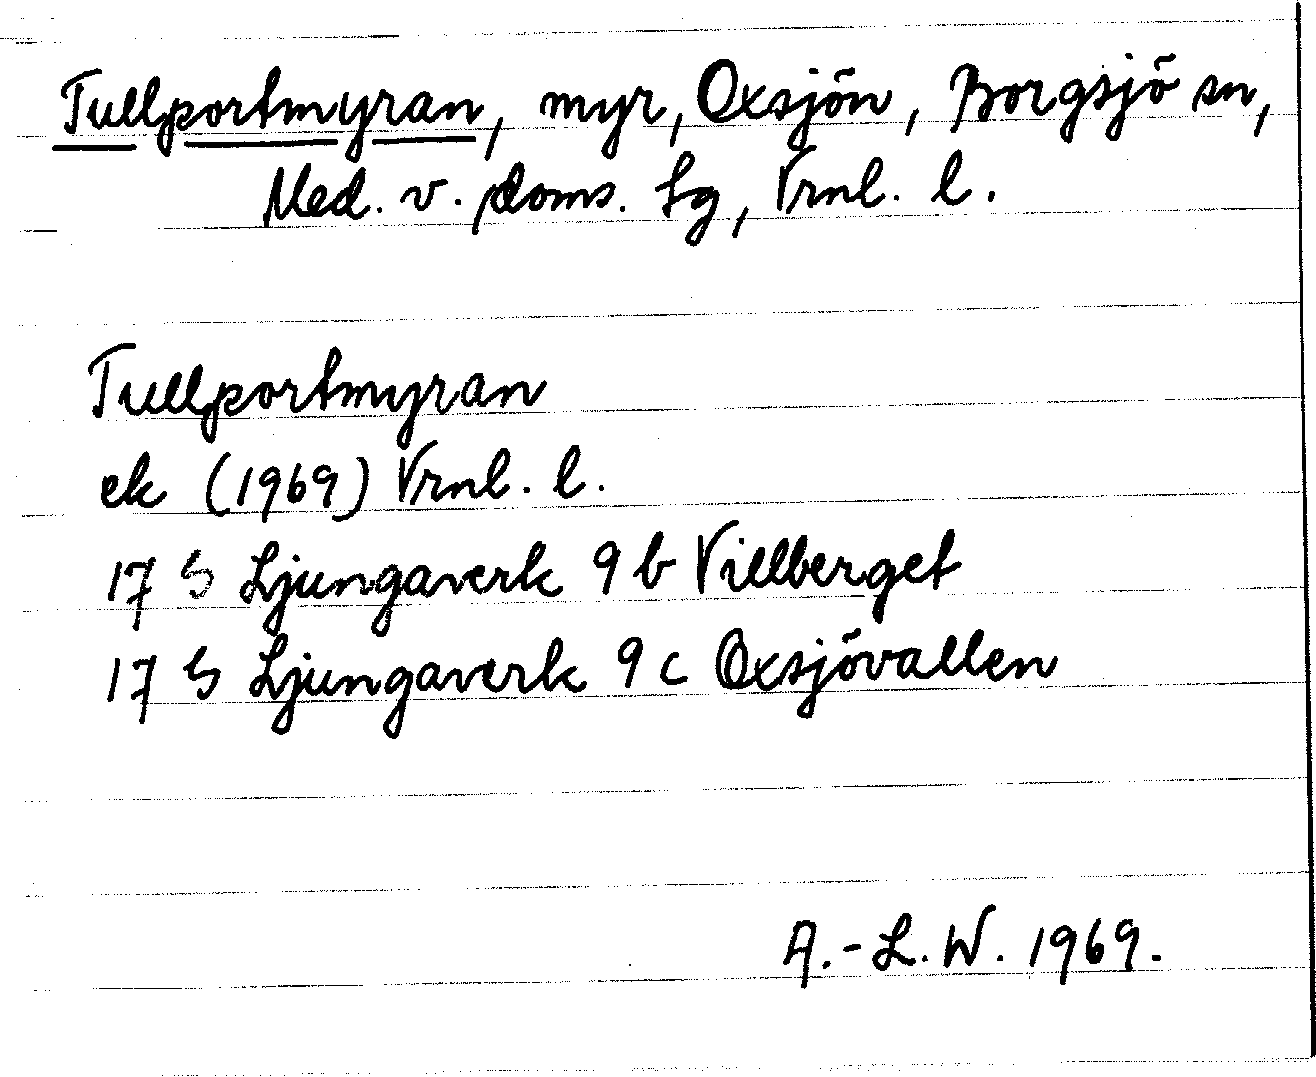 Tullportmyran, myr, Oxsjön, Borgsjö sn,
Med. v. doms. lg, Vrnl. l.
Tullportmyran
ek (1969) Vrnl. l.
17 G Ljungaverk 9 b Villberget
17 G Ljungaverk 9 c Oxsjövallen
A.-L. W. 1969.